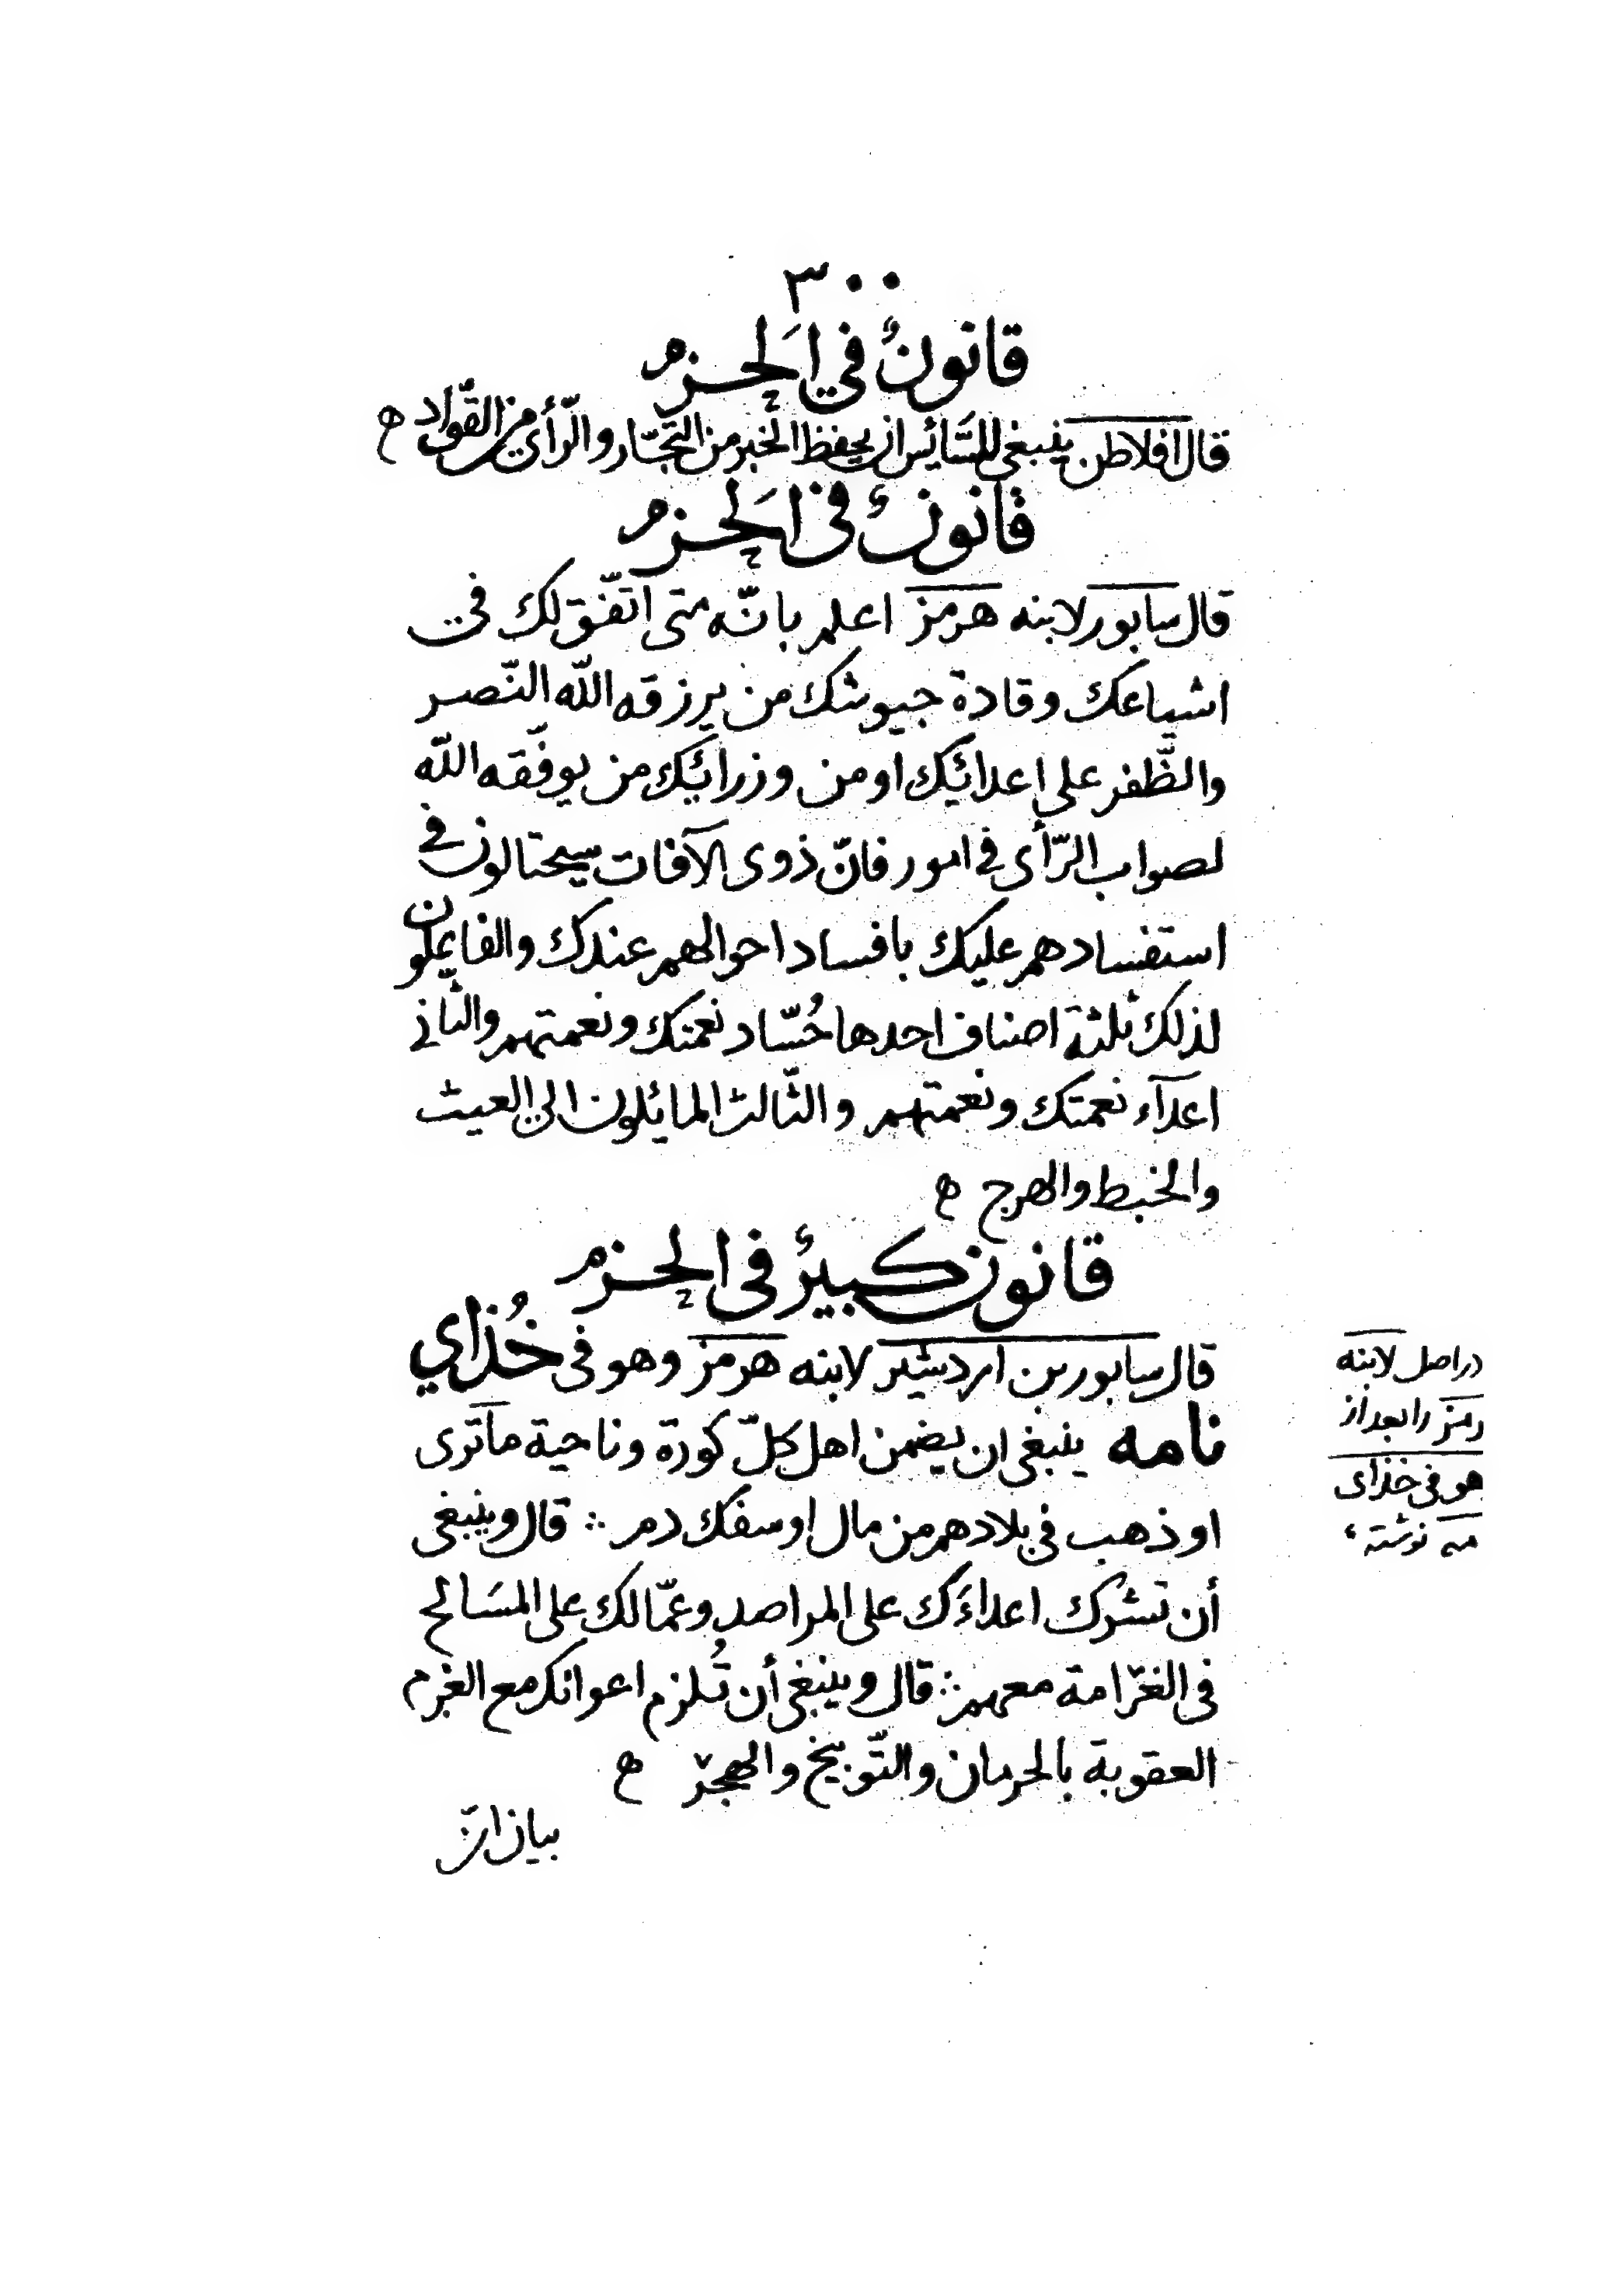 ٣٠٠
قانونٌ في الحزم
قال افلاطن ينبغي للسّائس ان يحفظ الخبر من التجّار والرّأي من القوّاد ه
قانونٌ في الحزم
قال سابور لابنه هرمز اعلم بانّه متى اتّفق لك في
اشياعك وقادة جيوشك من يرزقه اللّه النّصر
والظّفر على اعدائك او من وزرائك من يوفّقه اللّه
لصواب الرّأى في امور فانّ ذوى الآفات سيحتالون في
استفسادهم عليك بافساد احوالهم عندك والفاعلون
لذلك ثلثة اصناف احدها حُسّاد نعمتك ونعمتهم والثاني
اعدآء نعمتك ونعمتهم والثّالث المائلون الى العيث
والخبط والهرج ه
قانون كبيرٌ في الحزم
قال سابور بن اردشير لابنه هرمز وهو في خُذاي
نامه ينبغي ان يضمن اهل كلّ كورة وناحية مآترى
او ذهب في بلادهم من مال او سفك دم ∴ قال وينبغي
أن تشرك اعداءَك على المراصد وعمّالك على المسَالح
في الغرامة معهم ∴ قال وينبغي أن تُلزم اعوانك مع الغرم
العقوبة بالحرمان والتّوبيخ والهجر ه
بيان انّ
در اصل لابنه
رمز را بعد از
هو في خذاى
مه نوشته،